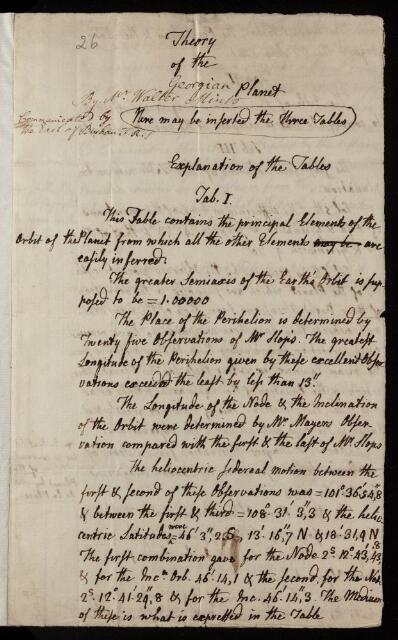 26
Theory
of the
Georgian Planet
By Mr. Walter Minto
Communicated by
the Earl of Buchan F.R.S
Here may be inserted the three Tables
Explanation of the Tables
Tab. I.
This Table contains the principal Elements of the
Orbit of the Planet from which all the other Elements may be are
easily inferred.
The greater Semiaxis of the Earth's Orbit is sup
posed to be = 1.00000
The Place of the Perihelion is determined by
Twenty five Observations of Mr Slop's. The greatest
Longitude of the Perihelion given by these excellent Obser
vations exceeded the least by less than 13".
The Longitude of the Node & the Inclination
of the Orbit were determined by Mr. Mayers Obser-
vation compared with the first & the last of Mr Slops
The heliocentric sidereal motion between the
first & second of these Observations was = 101° 36' 54",8
& between the first & third = 108° 31' 3",3 & the helio
centric Latitudes were = 46' 3",2 S, 13' 16",7 N & 18' 31",9 N
The first combination gave for the Node 2s 12° 43' 43",8
& for the Inc. Orb. 46' 14",1 & the second, for the Nod.
2s. 12° 41' 29",8 & for the Inc. 46' 14",3. The Medium
of these is what is expressed in the Table